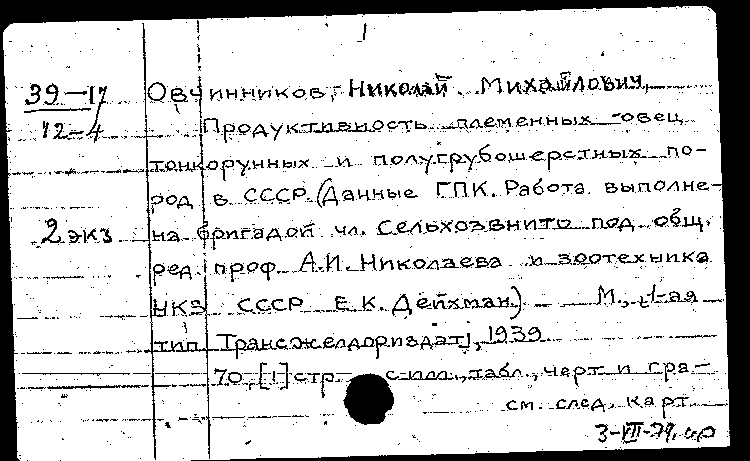 39-17 Овчинников, Николай Михайлович,
12-4 Продуктивность племенных овец
тонкорунных и полугрубошерстных по-
род в СССР. (Данные ГПК. Работа выполне-
2 экз на бригадой чл. Сельхозвнито под общ.
ред. проф. А.И. Николаева и зоотехника
НКЗ СССР Е.К. Дейхман.) — М., 1-ая
тип. Трансжелдориздат, 1939
70, [1] стр. с илл., табл., черт. и гра-
см. след. карт.
3-VII-79